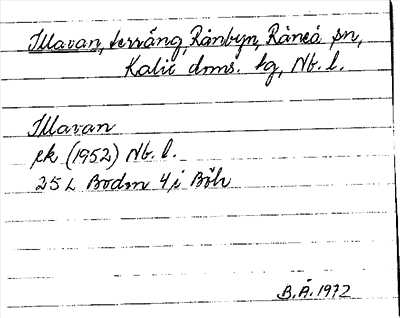 Illavan, terräng, Rånbyn, Råneå sn,
Kalix dms. tg, Nb. l.
Illavan
ek (1952) Nb. l.
25 L Boden 4 i Böh
B.Å. 1972